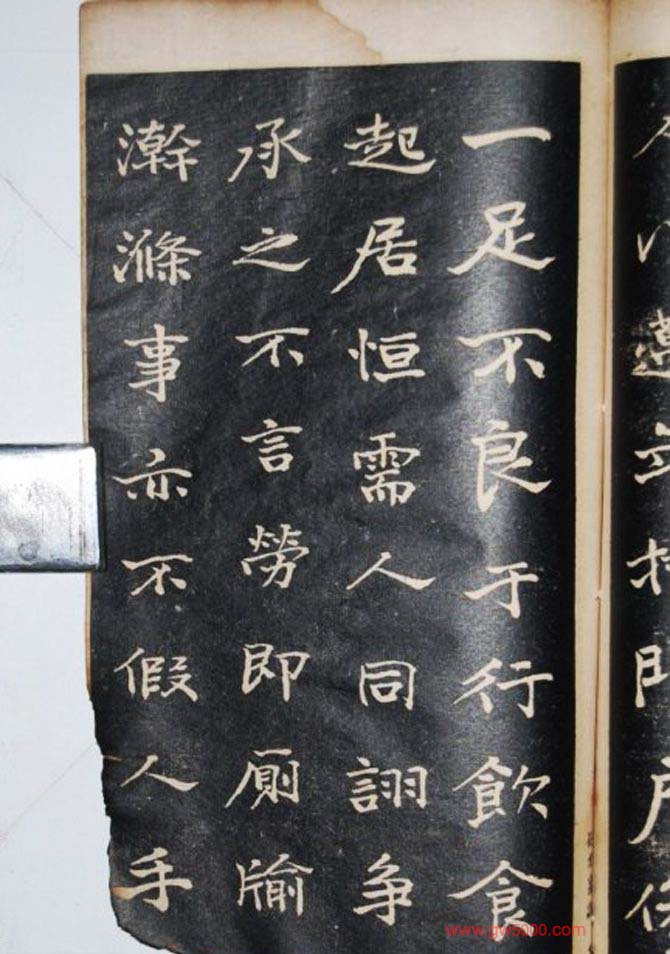 一足不良于行飲食
起居恒需人同詡争
承之不言勞即廁牏
澣滌事亦不假人手
www.gw5000.com